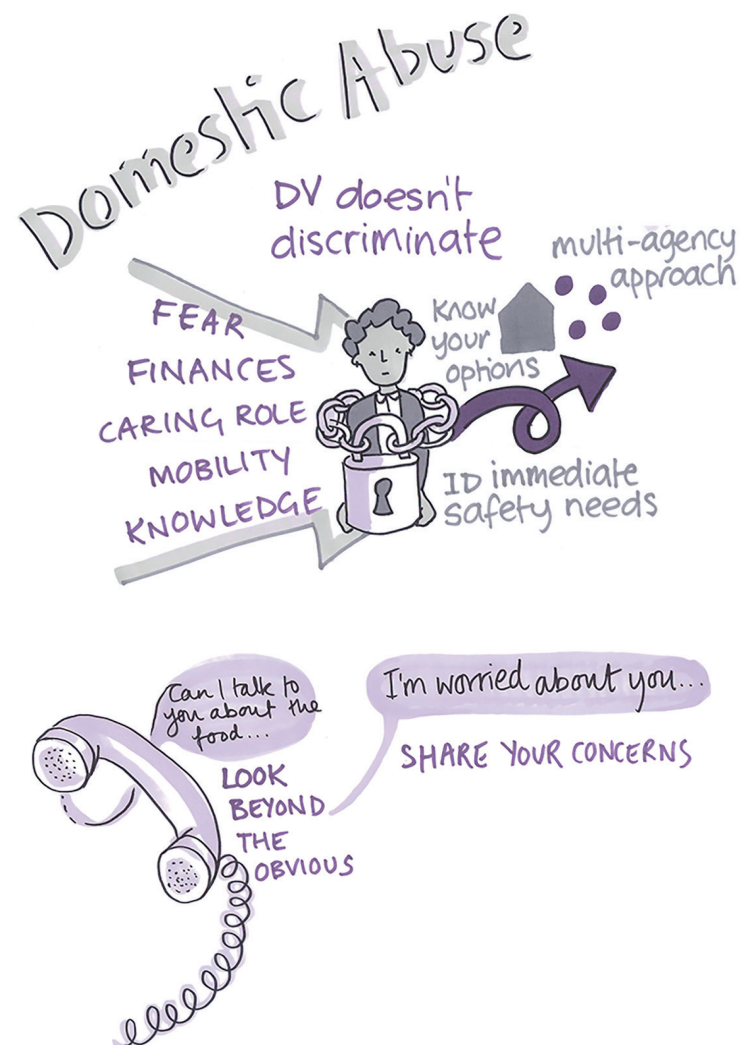 Domestic Abuse
DV doesn't
discriminate
multi-agency
approach
FEAR
FINANCES
CARING ROLE
MOBILITY
KNOWLEDGE
Know
your
options
ID immediate
safety needs
Can I talk to
you about the
food...
LOOK
BEYOND
THE
OBVIOUS
I'm worried about you...
SHARE YOUR CONCERNS